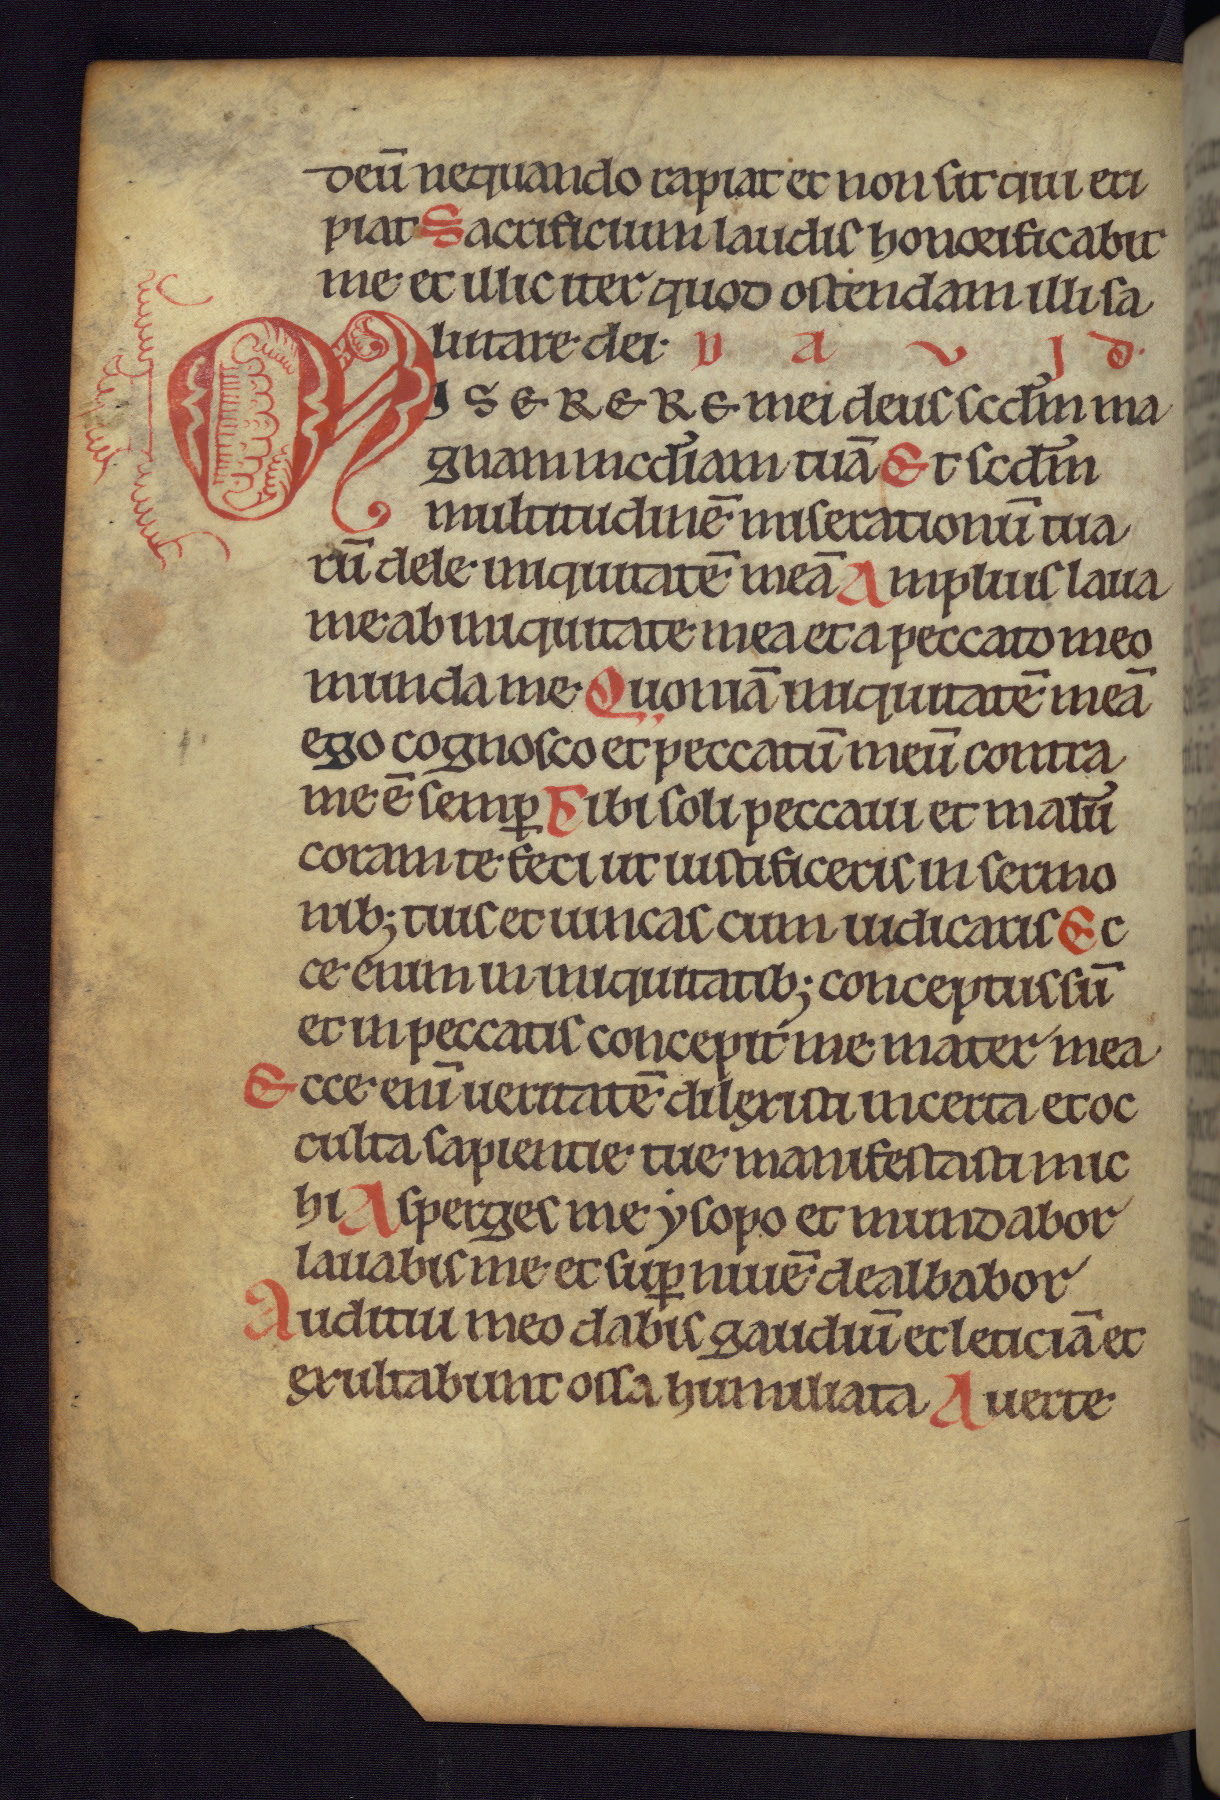 deū nequando rapiat et non sit qui eri
piat Sacrificium laudis honorificabit
me et illic iter quod ostendam illi sa
lutare dei D A V I D
MISERERE mei deus scd̄m ma
gnam mcd̄iam tuā Et scd̄m
multitudinē miserationū tua
rū dele iniquitatē meā Amplius laua
me ab iniquitate mea et a peccato meo
munda me Quoniā iniquitatē meā
ego cognosco et peccatū meū contra
me ē semꝑ Tibi soli peccaui et malū
coram te feci ut iustificeris in sermo
nib; tuis et uincas cum iudicaris Ec
ce enim in iniquitatib; conceptus sū
et in peccatis concepit me mater mea
Ecce eni̅ ueritatē dilexisti incerta et oc
culta sapientie tue manifestasti mic
hi Asperges me ẏsopo et mundabor
lauabis me et suꝑ niuē dealbabor
Auditui meo dabis gaudiū et leticiā et
exultabunt ossa humiliata Auerte